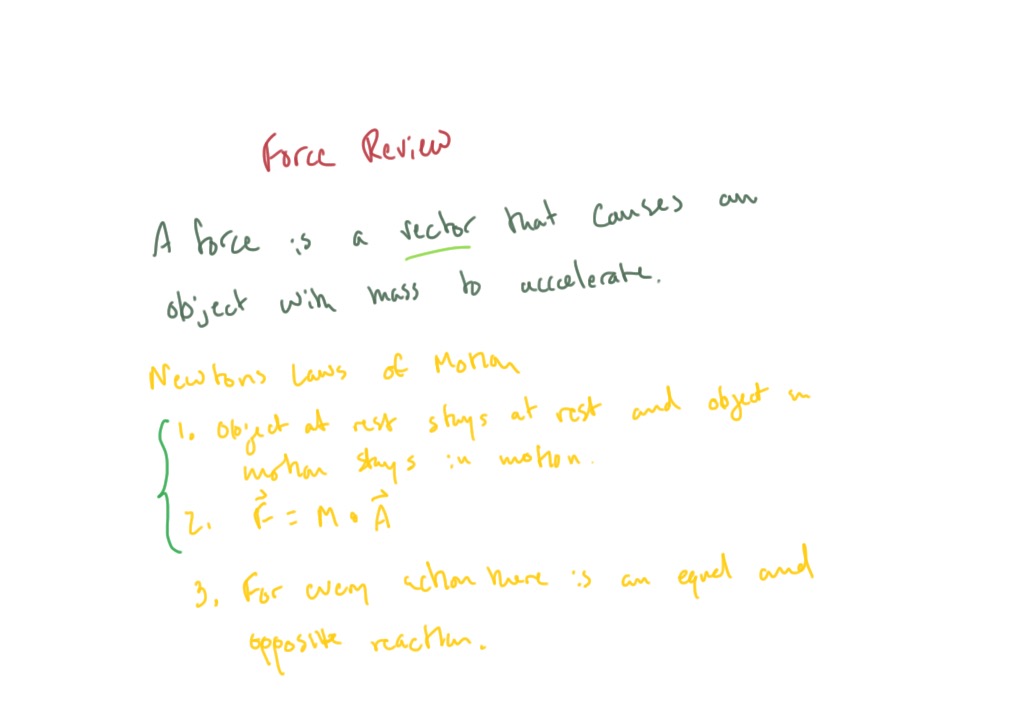 Force Review
A force is a vector that causes an
object with mass to accelerate.
Newtons Laws of Motion
1. Object at rest stays at rest and object in
motion stays in motion.
2. F⃗ = M • A⃗
3. For every action there is an equal and
opposite reaction.